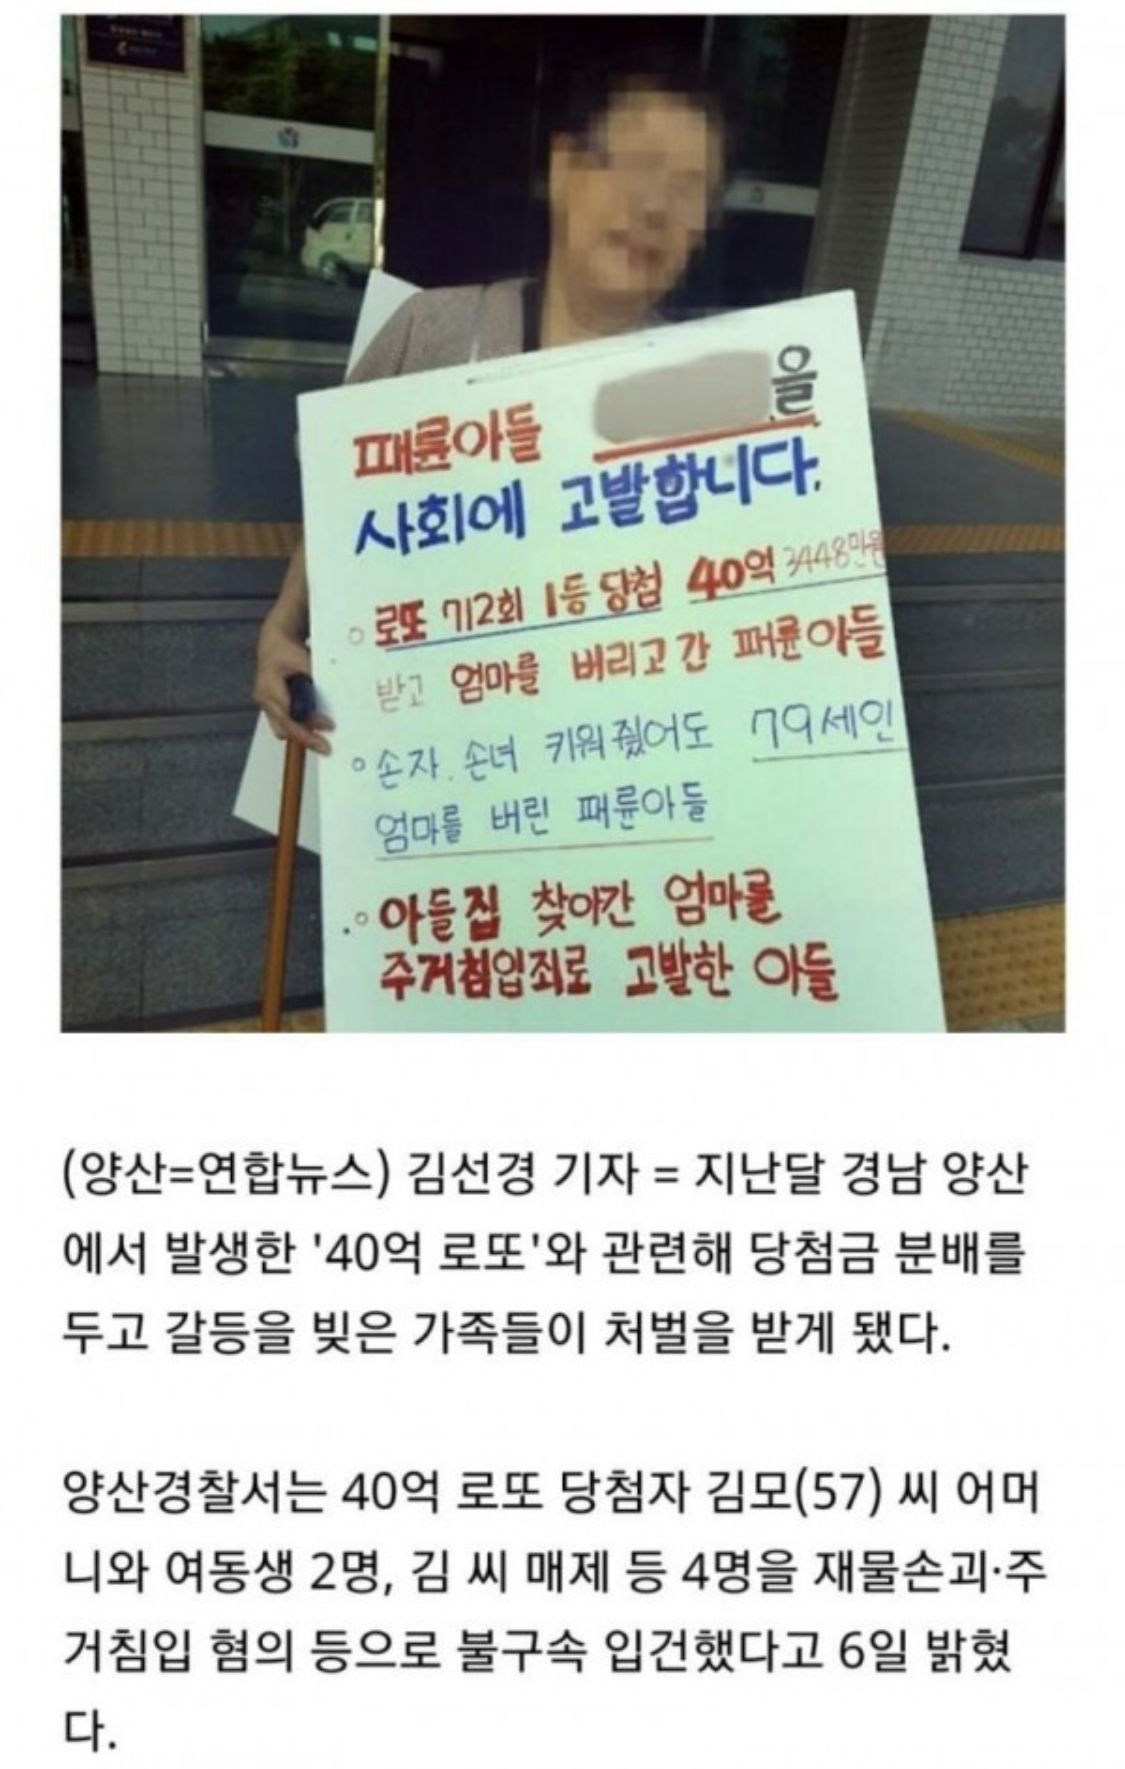 패륜아들 을
사회에 고발합니다.
로또 712회 1등 당첨 40억 3448만원
받고 엄마를 버리고 간 패륜아들
손자. 손녀 키워줬어도 79세인
엄마를 버린 패륜아들
아들집 찾아간 엄마를
주거침입죄로 고발한 아들
(양산=연합뉴스) 김선경 기자 = 지난달 경남 양산
에서 발생한 '40억 로또'와 관련해 당첨금 분배를
두고 갈등을 빚은 가족들이 처벌을 받게 됐다.
양산경찰서는 40억 로또 당첨자 김모(57) 씨 어머
니와 여동생 2명, 김 씨 매제 등 4명을 재물손괴·주
거침입 혐의 등으로 불구속 입건했다고 6일 밝혔
다.